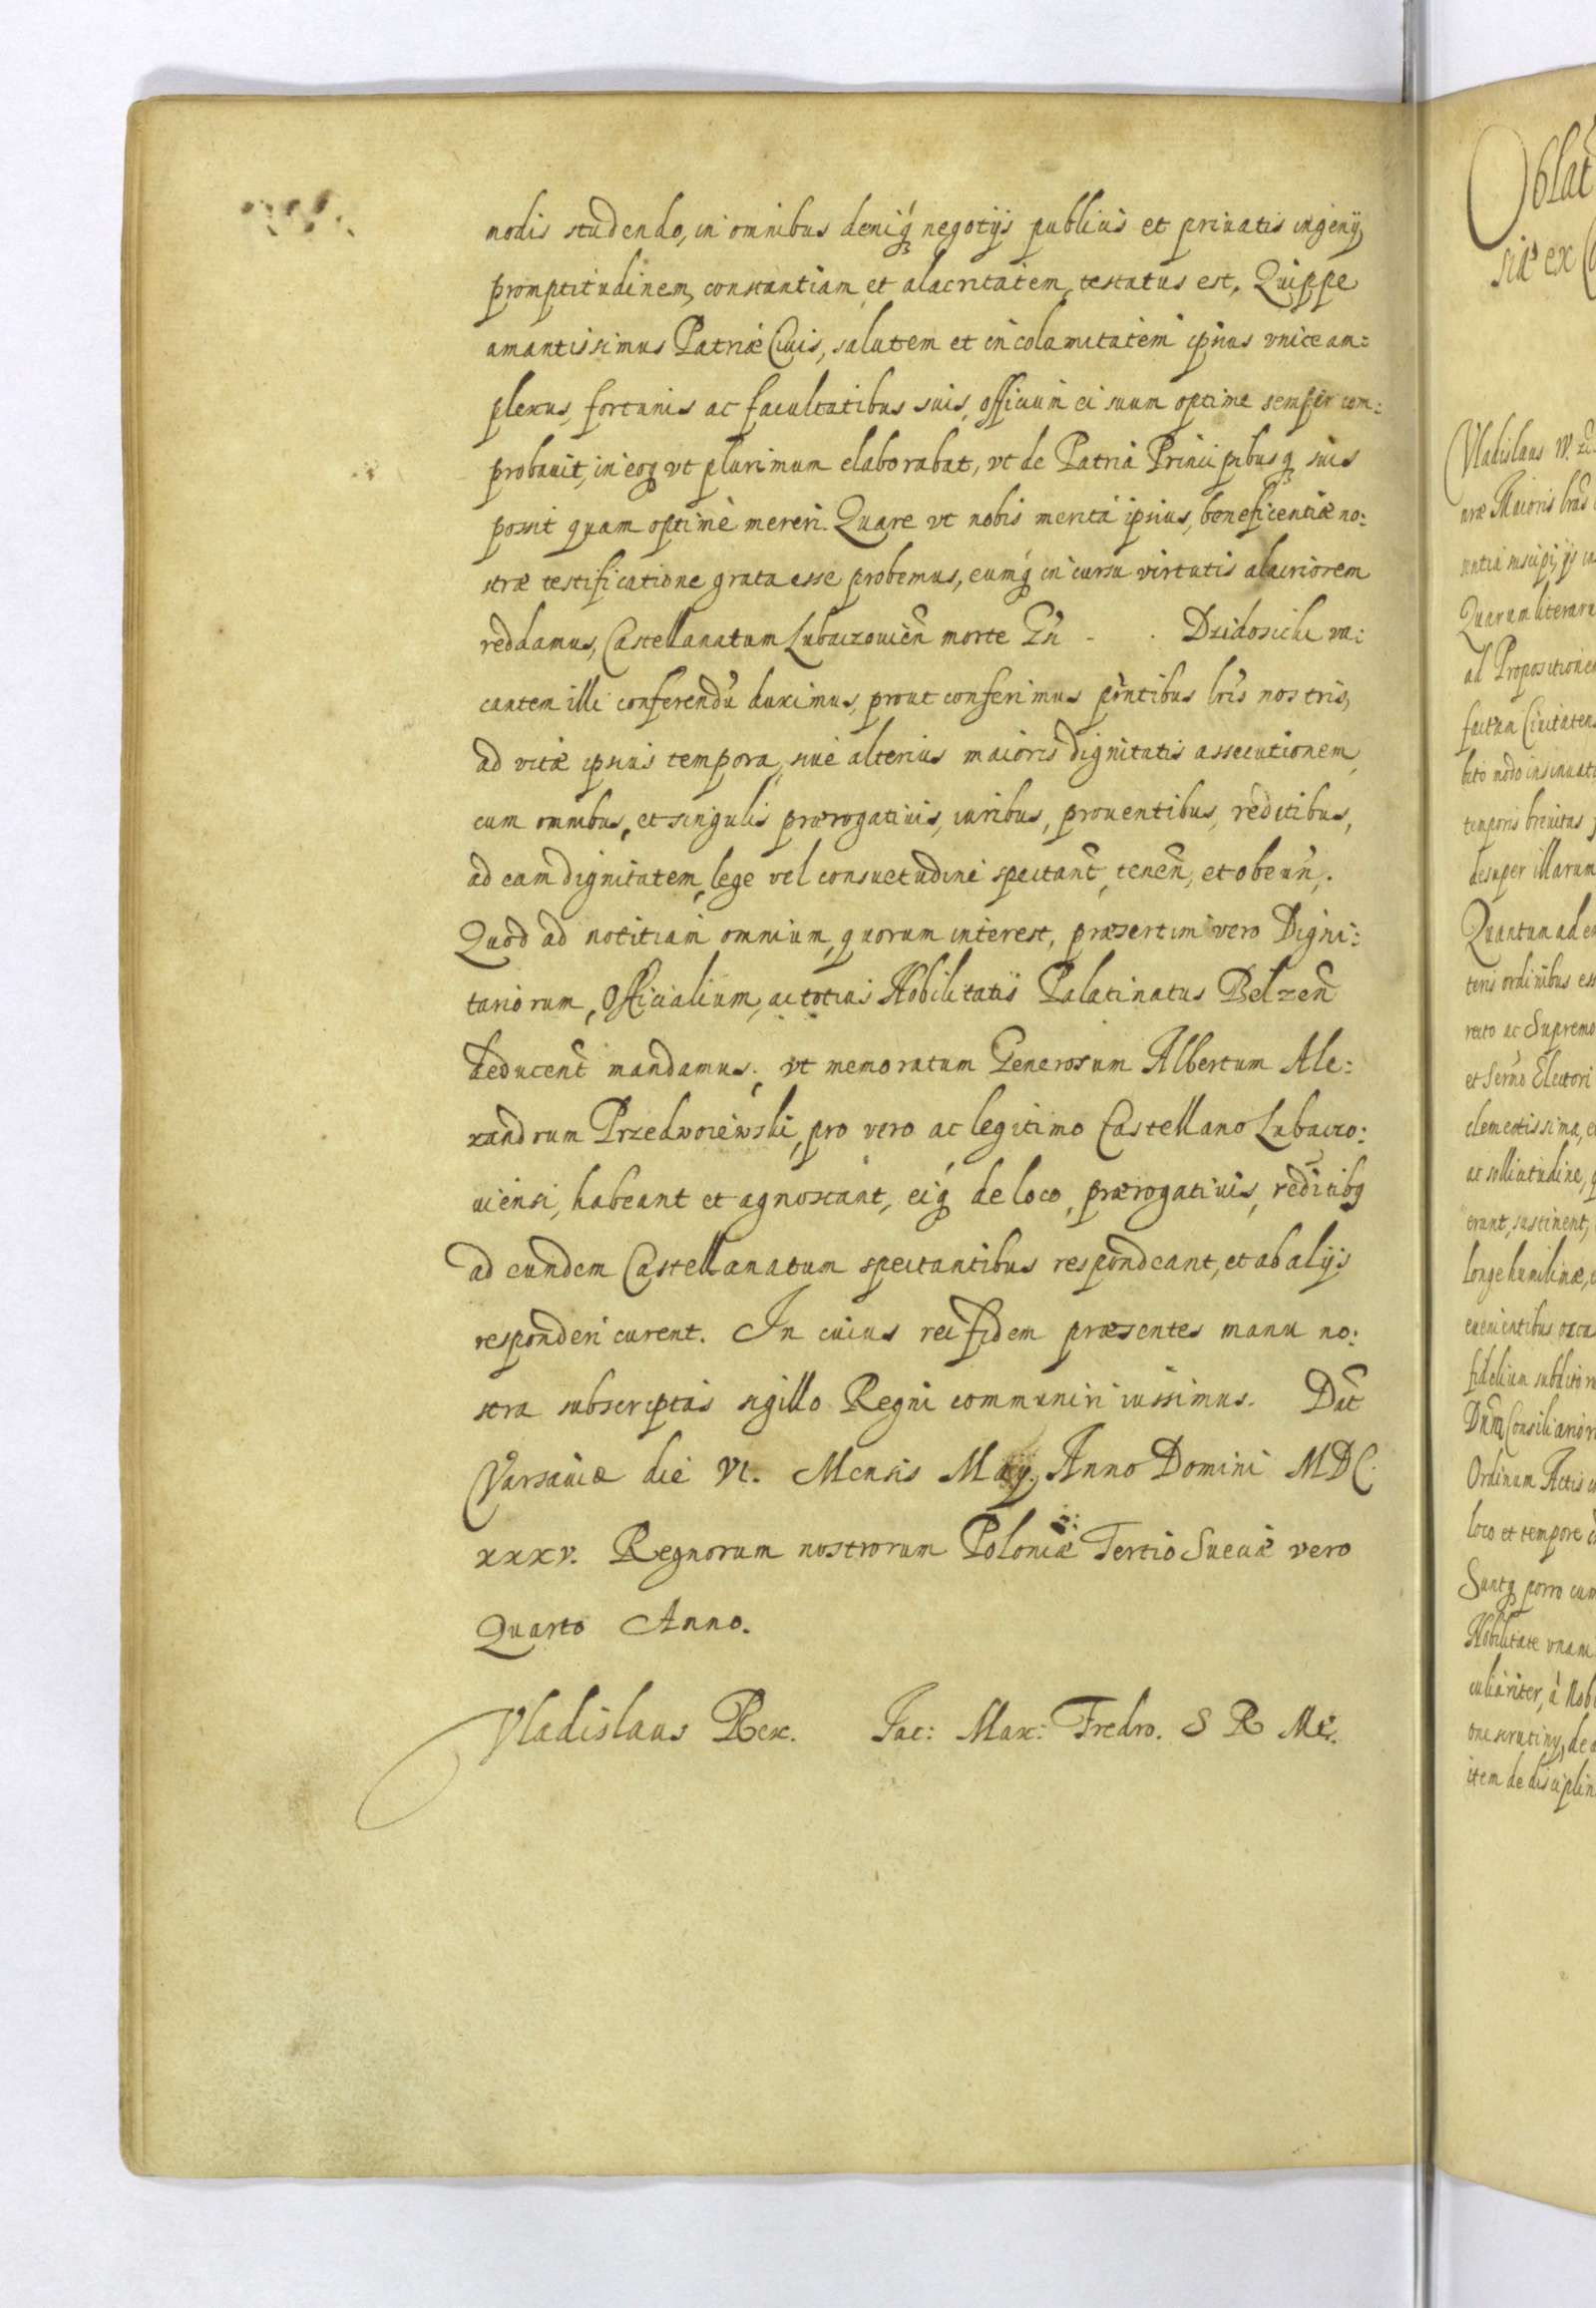 modis studendo, in omnibus deniq́ negotijs publicis et priuatis ingenij
promptitudinem, constantiam et alacritatem, testatus est, Quippe
amantissimus Patriæ Ciuis, salutem et incolumitatem ipsius vnice am:
plexus, fortunis ac facultatibus suis, officium ei suum optime semper com:
probauit, in eoq vt plurimum elaborabat, vt de Patria Principibusq suis
possit quam optimè mereri. Quare vt nobis merita ipsius, beneficentiæ no:
stræ testificatione grata esse probemus, eumq́ in cursu virtutis alacriorem
reddamus, Castellanatum Lubaczouień morte Gń - . Dzidosicki va:
cantem illi conferendū duximus, prout conferimus pńtibus lrīs nostris,
ad vitæ ipsius tempora, siue alterius maioris dignitatis assecutionem,
cum omnibus, et singulis prærogatiuis, iuribus, prouentibus, reditibus,
ad eam dignitatem, lege vel consuetudine spectant̃, teneñ, et obeuñ.
Quod ad notitiam omnium, quorum interest, præsertim vero Digni:
tariorum, Officialium, ac totius Nobilitatis Palatinatus Belzeñ
deducent̃ mandamus; vt memoratum Generosum Albertum Ale:
xandrum Przedwoiewski, pro vero ac legitimo Castellano Lubaczo:
uiensi, habeant et agnoscant, eiq́ de loco, prærogatiuis, reditibq
ad eundem Castellanatum spectantibus respondeant, et ab alijs
responderi curent. In cuius rei fidem præsentes manu no:
stra subscriptas sigillo Regni communiri iussimus. Dat̃
Varsauiæ die VI. Mensis Maij. Anno Domini MDC.
xxxv. Regnorum nostrorum Poloniæ Tertio Sueciæ vero
Quarto Anno.
Vladislaus Rex. Jac: Max: Fredro. S R Mt.
Oblat̃
siæ ex
Vladislaus IV.
Maioris
Quarum literaru
ad Propositiones
factam Ciuitatens
temporis breuitas
desuper illarum
Quantum ad
teris ordinibus
ac Supremo
et Sermo Electori
clementissima,
ac sollicitudine,
erunt, sustinent,
euenientibus
fidelium subditor
Consiliarior
Ordinum Actis
loco et tempore
Suntq porro cum
Nobilitate vnam
culiariter, à Nob
scrutiny, de
item de disciplin